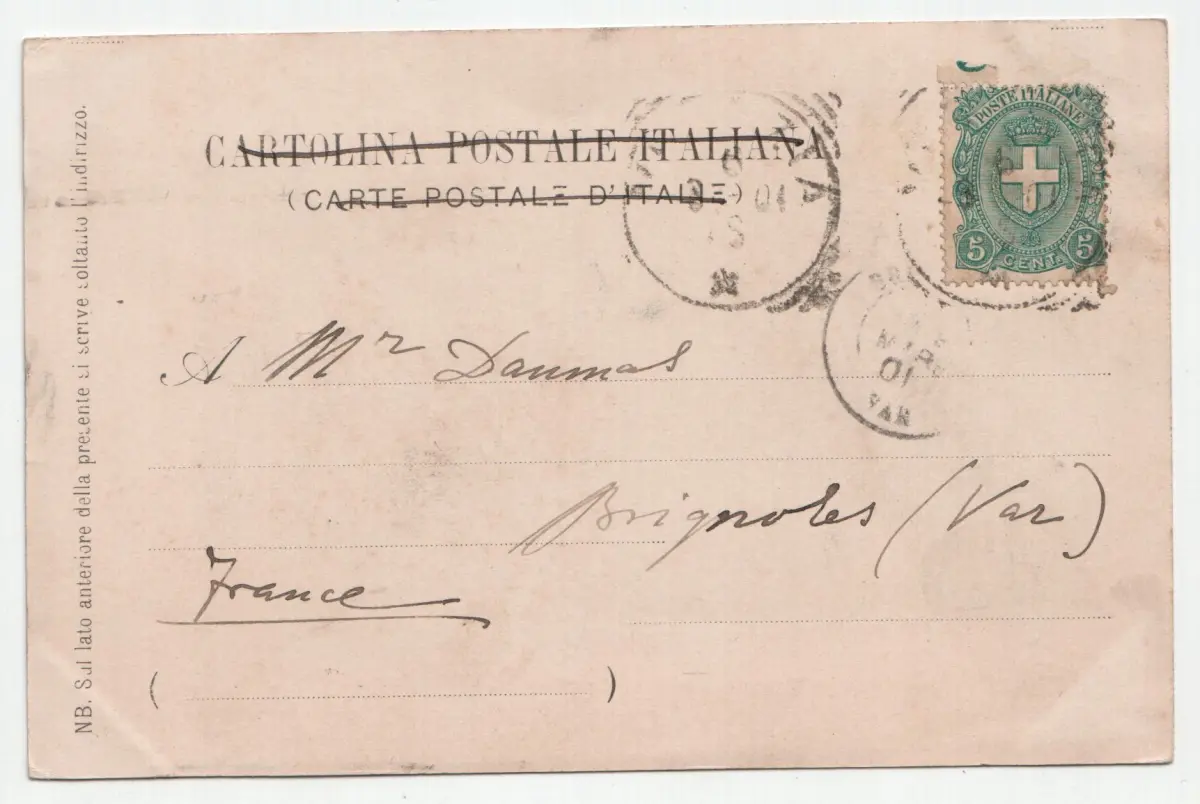 CARTOLINA POSTALE ITALIANA
(CARTE POSTALE D'ITALIE)
POSTE ITALIANE
5 CENT. 5
01
MARS
01
VAR
A Mr Daumas
Brignoles (Var)
France
NB. Sul lato anteriore della presente si scrive soltanto l'indirizzo.